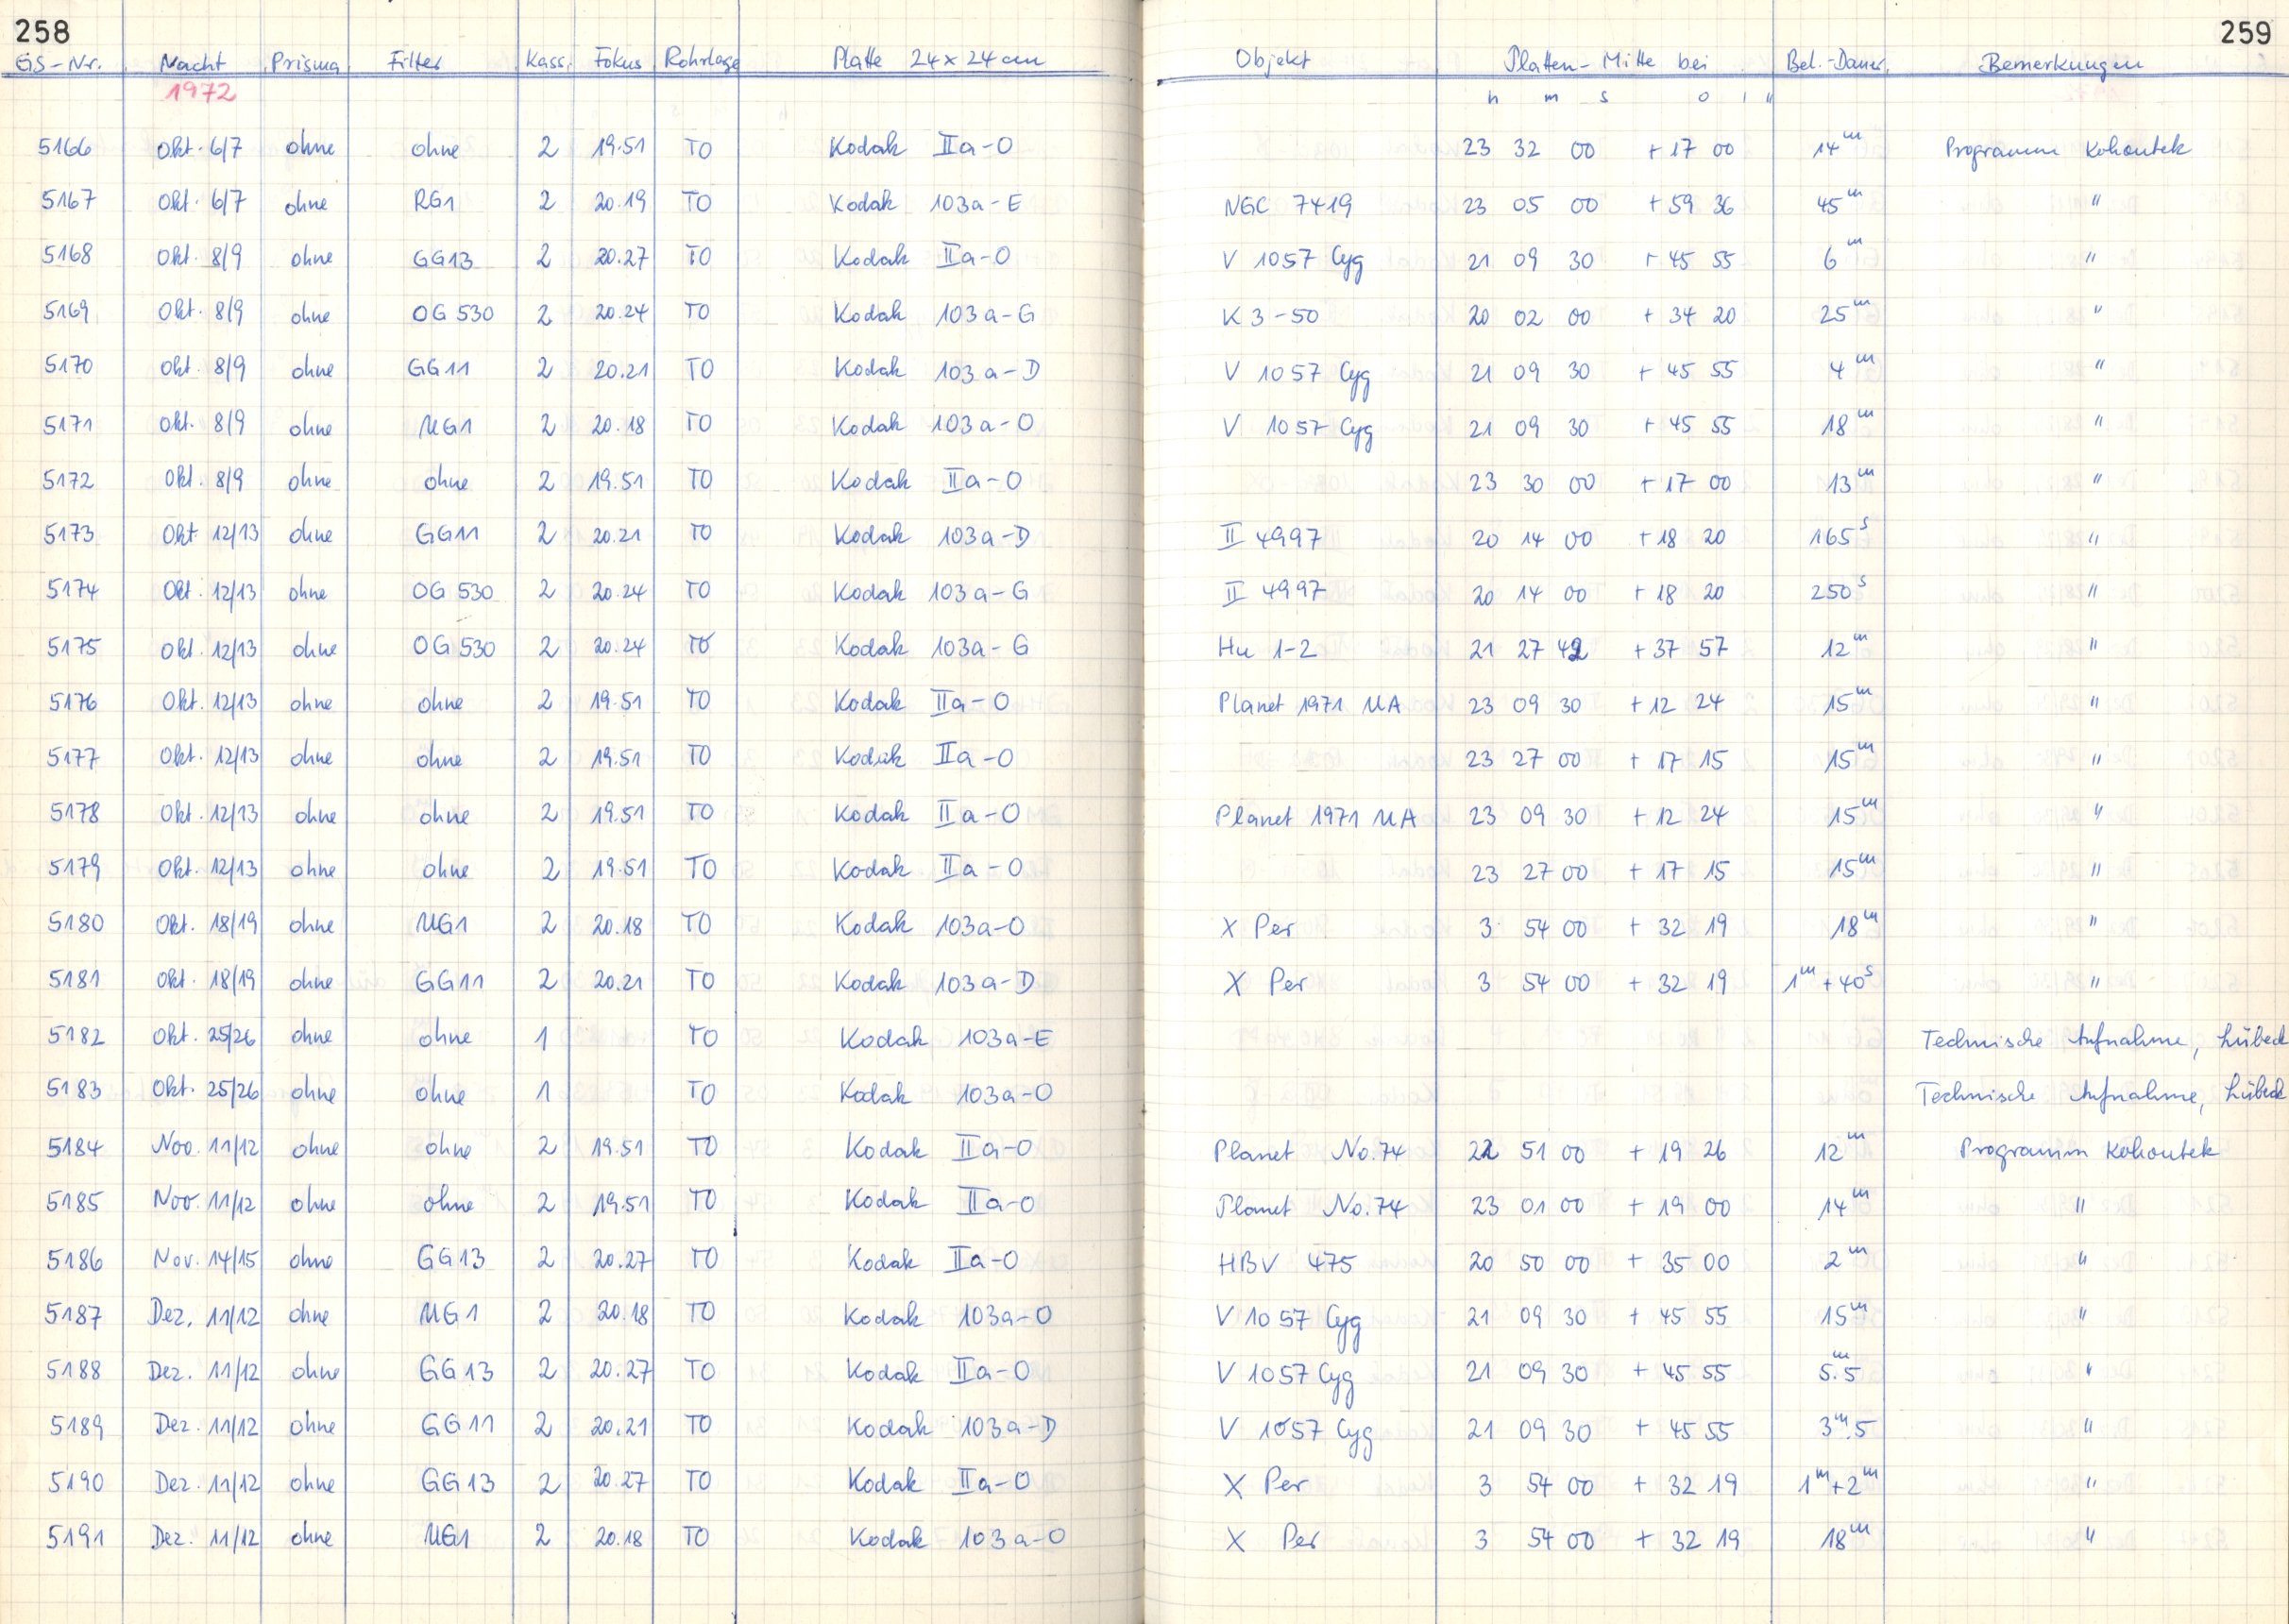 258 259
GS-Nr. Nacht Prisma Filter Kass. Fokus Rohrlage Platte 24×24cm Objekt Platten-Mitte bei Bel.-Dauer. Bemerkungen
1972 h m s o ' "
5166 Okt. 6/7 ohne ohne 2 19.51 TO Kodak IIa-O 23 32 00 +17 00 14m Programm Kohoutek
5167 Okt. 6/7 ohne RG1 2 20.19 TO Kodak 103a-E NGC 7419 23 05 00 +59 36 45m "
5168 Okt. 8/9 ohne GG13 2 20.27 TO Kodak IIa-O V 1057 Cyg 21 09 30 +45 55 6m "
5169 Okt. 8/9 ohne OG 530 2 20.24 TO Kodak 103a-G K 3-50 20 02 00 +34 20 25m "
5170 Okt. 8/9 ohne GG11 2 20.21 TO Kodak 103a-D V 1057 Cyg 21 09 30 +45 55 4m "
5171 Okt. 8/9 ohne UG1 2 20.18 TO Kodak 103a-O V 1057 Cyg 21 09 30 +45 55 18m "
5172 Okt. 8/9 ohne ohne 2 19.51 TO Kodak IIa-O 23 30 00 +17 00 13m "
5173 Okt 12/13 ohne GG11 2 20.21 TO Kodak 103a-D II 4997 20 14 00 +18 20 165s "
5174 Okt. 12/13 ohne OG 530 2 20.24 TO Kodak 103a-G II 4997 20 14 00 +18 20 250s "
5175 Okt. 12/13 ohne OG 530 2 20.24 TO Kodak 103a-G Hu 1-2 21 27 42 +37 57 12m "
5176 Okt. 12/13 ohne ohne 2 19.51 TO Kodak IIa-O Planet 1971 UA 23 09 30 +12 24 15m "
5177 Okt. 12/13 ohne ohne 2 19.51 TO Kodak IIa-O 23 27 00 +17 15 15m "
5178 Okt. 12/13 ohne ohne 2 19.51 TO Kodak IIa-O Planet 1971 UA 23 09 30 +12 24 15m "
5179 Okt. 12/13 ohne ohne 2 19.51 TO Kodak IIa-O 23 27 00 +17 15 15m "
5180 Okt. 18/19 ohne UG1 2 20.18 TO Kodak 103a-O X Per 3 54 00 +32 19 18m "
5181 Okt. 18/19 ohne GG11 2 20.21 TO Kodak 103a-D X Per 3 54 00 +32 19 1m+40s "
5182 Okt. 25/26 ohne ohne 1 TO Kodak 103a-E Technische Aufnahme, Lübeck
5183 Okt. 25/26 ohne ohne 1 TO Kodak 103a-O Technische Aufnahme, Lübeck
5184 Nov. 11/12 ohne ohne 2 19.51 TO Kodak IIa-O Planet No.74 22 51 00 +19 26 12m Programm Kohoutek
5185 Nov. 11/12 ohne ohne 2 19.51 TO Kodak IIa-O Planet No.74 23 01 00 +19 00 14m "
5186 Nov. 14/15 ohne GG13 2 20.27 TO Kodak IIa-O HBV 475 20 50 00 +35 00 2m "
5187 Dez. 11/12 ohne UG1 2 20.18 TO Kodak 103a-O V 1057 Cyg 21 09 30 +45 55 15m "
5188 Dez. 11/12 ohne GG13 2 20.27 TO Kodak IIa-O V 1057 Cyg 21 09 30 +45 55 5m.5 "
5189 Dez. 11/12 ohne GG11 2 20.21 TO Kodak 103a-D V 1057 Cyg 21 09 30 +45 55 3m.5 "
5190 Dez. 11/12 ohne GG13 2 20.27 TO Kodak IIa-O X Per 3 54 00 +32 19 1m+2m "
5191 Dez. 11/12 ohne UG1 2 20.18 TO Kodak 103a-O X Per 3 54 00 +32 19 18m "